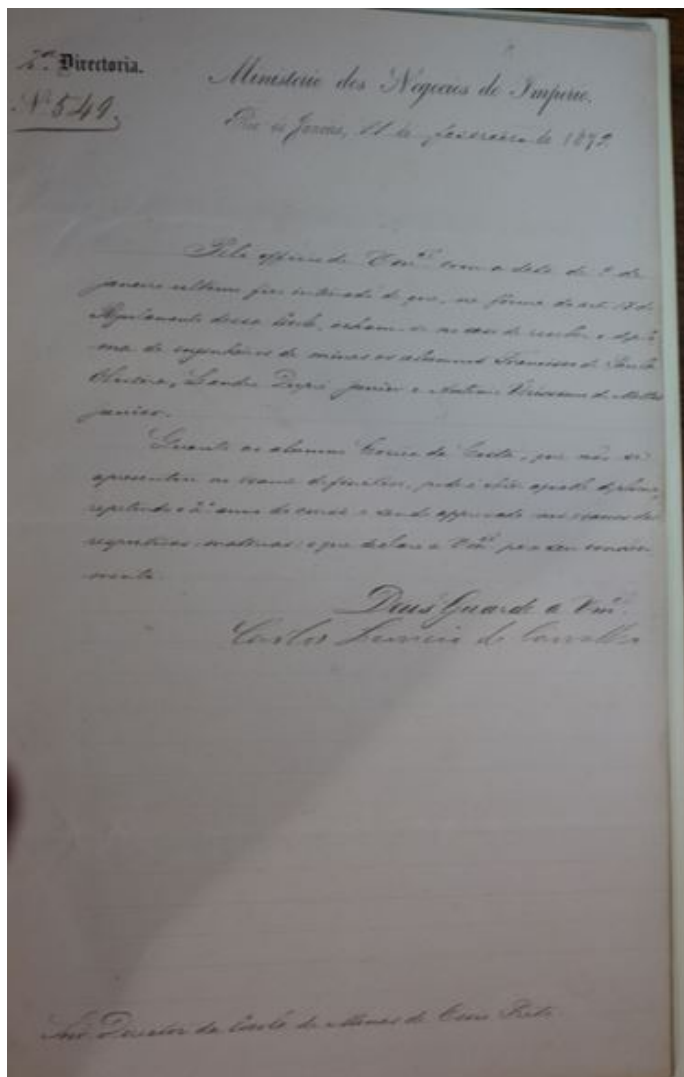 2ª Directoria.
Nº 549.
Ministerio dos Negocios do Imperio.
Rio de Janeiro, 11 de fevereiro de 1879.
Pelo officio de Vmcê com a data de 9 de
janeiro ultimo fico inteirado de que, na fórma do art. 17 do
Regulamento dessa Escola, acham-se no caso de receber o diplo
ma de engenheiros de minas os alumnos Francisco de Paula
Oliveira, Leandro Dupré Junior e Antonio de Mattos
junior.
Quanto ao alumno Corrêa da Costa, que não se
apresentou ao exame definitivo, poderá obter aquelle diploma,
repetindo o 2º anno do curso e sendo approvado nos exames das
respectivas materias: o que declaro a Vmcê para seu conheci
mento.
Deus Guarde a Vmcê.
Carlos Leoncio de Carvalho
Snr. Director da Escola de Minas de Ouro Preto.